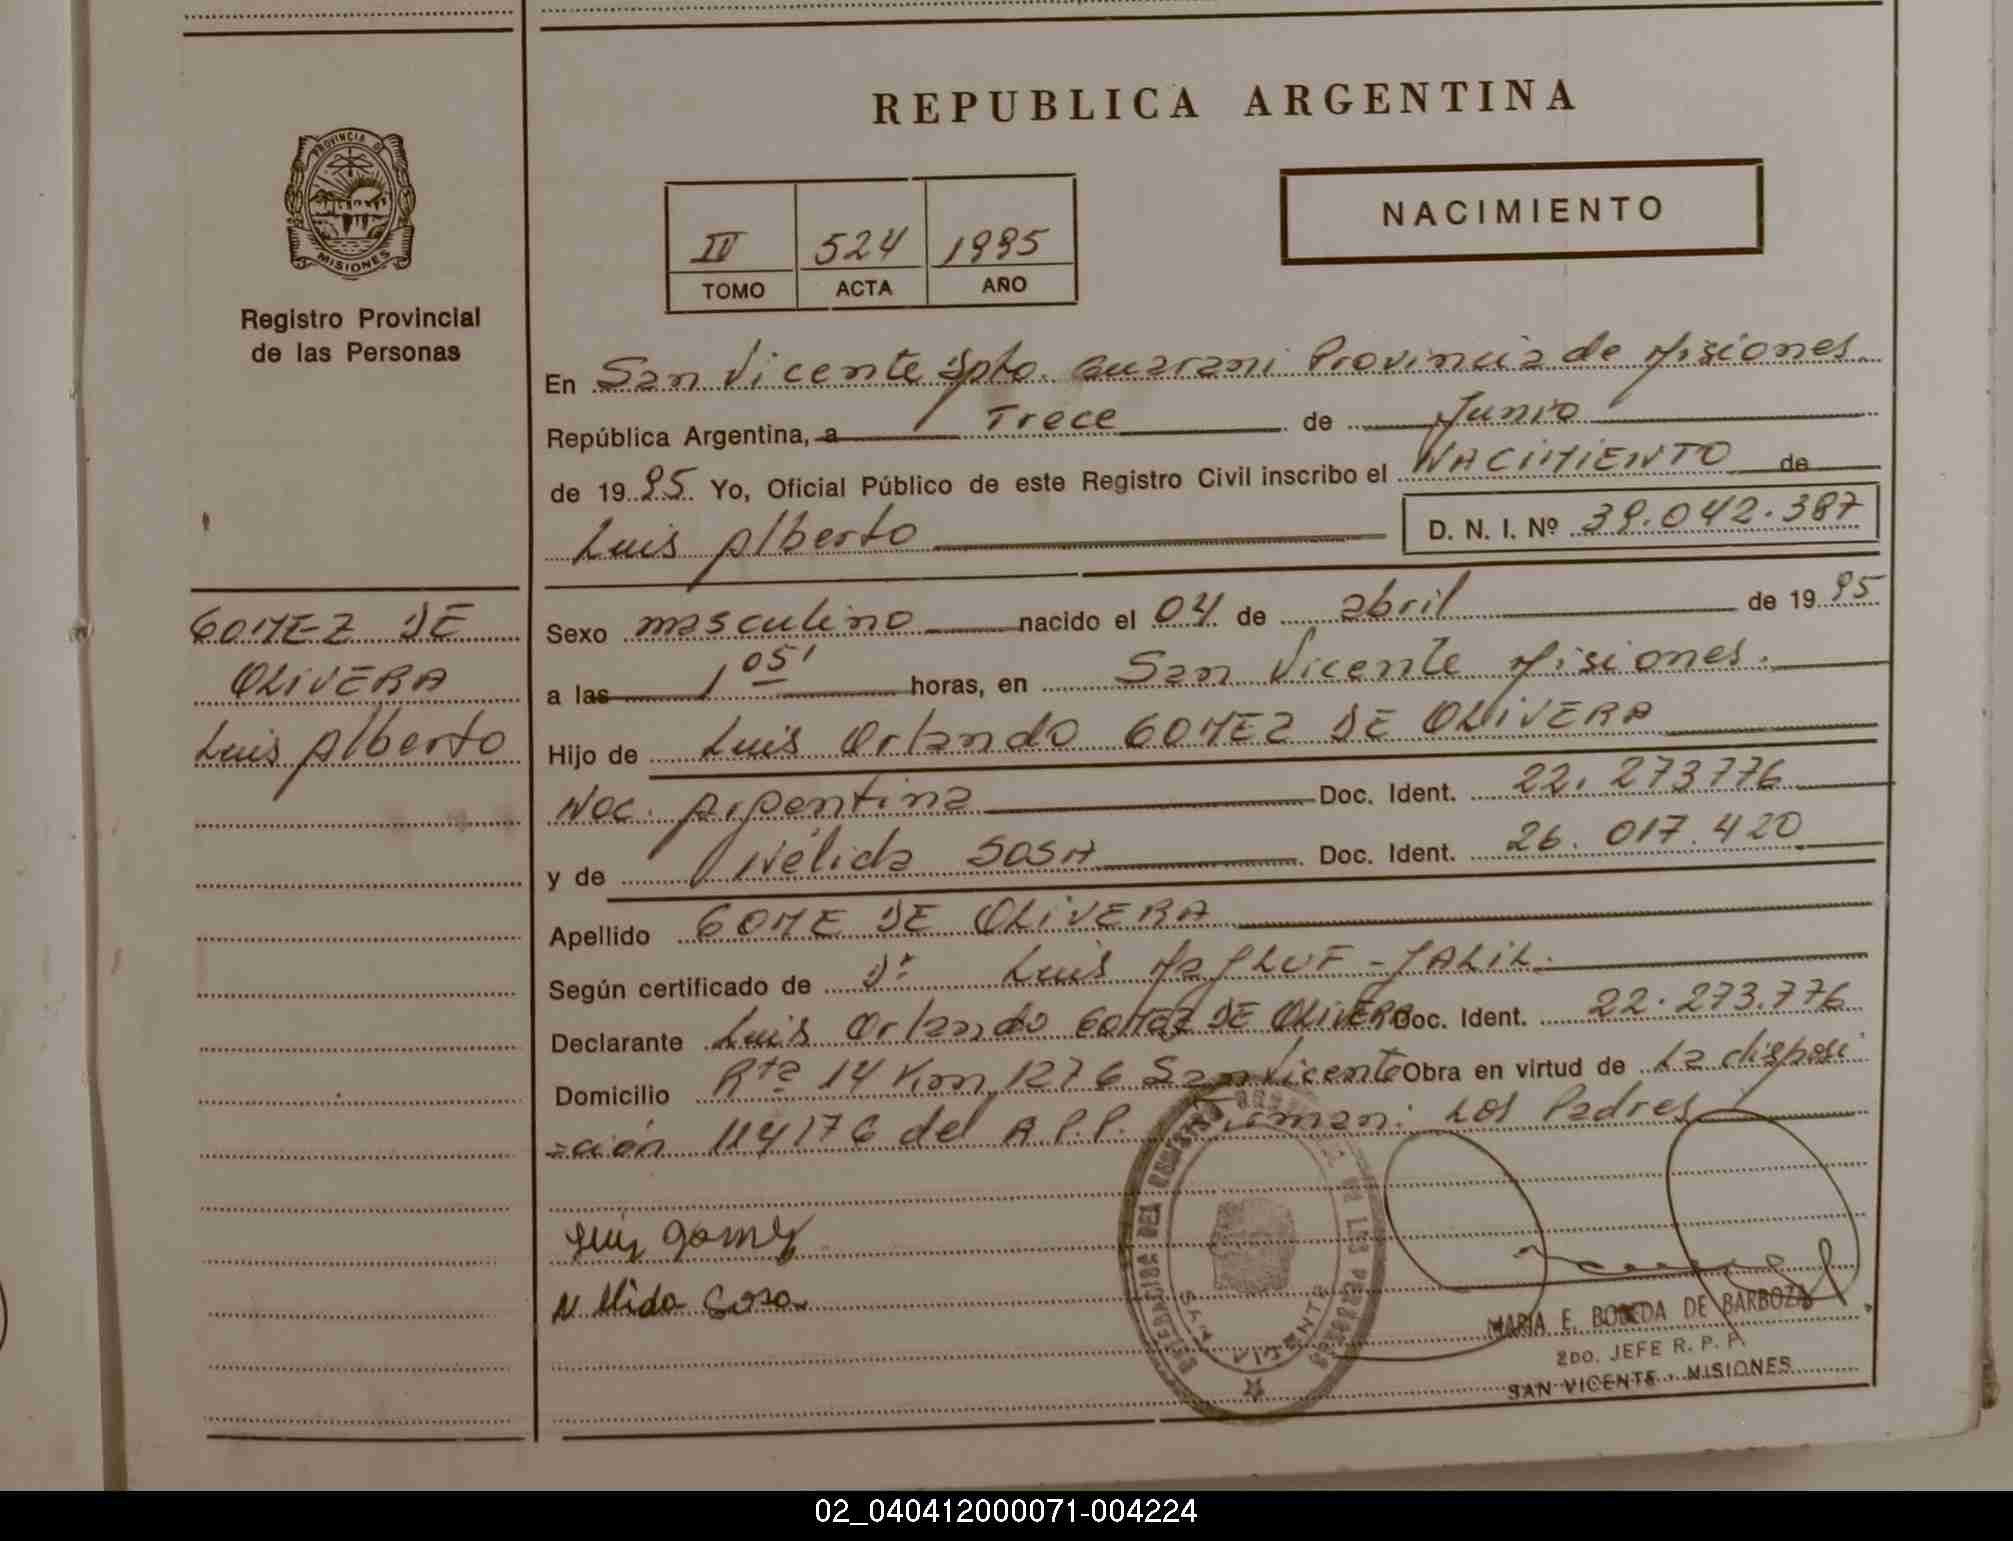 REPUBLICA ARGENTINA
PROVINCIA DE
MISIONES
Registro Provincial
de las Personas
IV 524 1995
TOMO ACTA AÑO
NACIMIENTO
En San Vicente Dpto. Guarani Provincia de Misiones
República Argentina, a Trece de Junio
de 1995 Yo, Oficial Público de este Registro Civil inscribo el NACIMIENTO de
Luis Alberto D. N. I. Nº 39.042.387
GOMEZ DE
OLIVERA
Luis Alberto
Sexo masculino nacido el 04 de abril de 1995
a las 1 05' horas, en San Vicente Misiones.
Hijo de Luis Orlando GOMEZ DE OLIVERA
Nac. Argentina Doc. Ident. 22.273776
y de Nélida SOSA Doc. Ident. 26.017.420
Apellido GOME DE OLIVERA
Según certificado de Dr Luis MaGLUF-JALIL.
Declarante Luis Orlando GOMEZ DE OLIVERA Doc. Ident. 22.273.776
Domicilio Rta 14 Km 1276 San Vicente Obra en virtud de La disposi
ción 114176 del A.P.P. Firman: Los Padres
Luis Gomez
Nelida Sosa
SAN VICENTE
MARIA E. BOBEDA DE BARBOZA
2DO. JEFE R. P. P.
SAN VICENTE - MISIONES
02_040412000071-004224